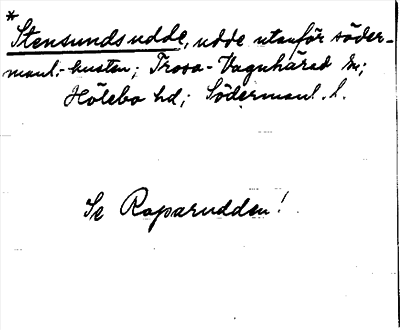 *
Stensundsudde, udde utanför söder-
manl.-kusten; Trosa-Vagnhärad sn;
Hölebo hd; Södermanl. l.
Se Raparudden!